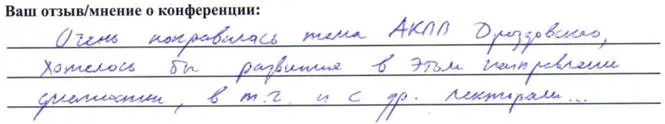 Ваш отзыв/мнение о конференции:
Очень понравилась тема АКПП Дроздовского,
хотелось бы развития в этом направлении
диагностики, в т.ч. и с др. лекторами...